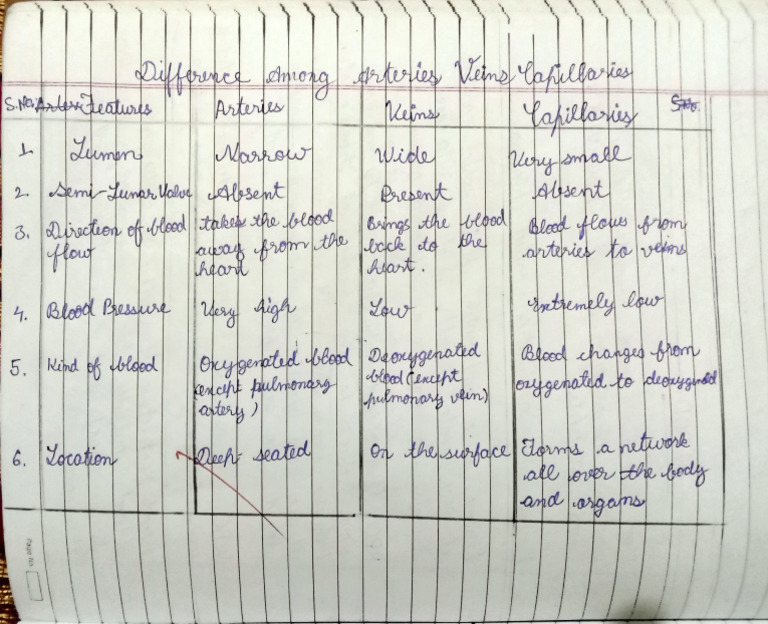 Difference Among Arteries Veins Capillaries
S.No. Features Arteries Veins Capillaries
1. Lumen Narrow Wide Very small
2. Semi-Lunar Valve Absent Present Absent
3. Direction of blood flow takes the blood away from the heart Brings the blood back to the heart. Blood flows from arteries to veins
4. Blood Pressure Very high Low Extremely low
5. Kind of blood Oxygenated blood (except pulmonary artery) Deoxygenated blood (except pulmonary vein) Blood changes from oxygenated to deoxygenated
6. Location Deep seated On the surface Forms a network all over the body and organs
Page No.